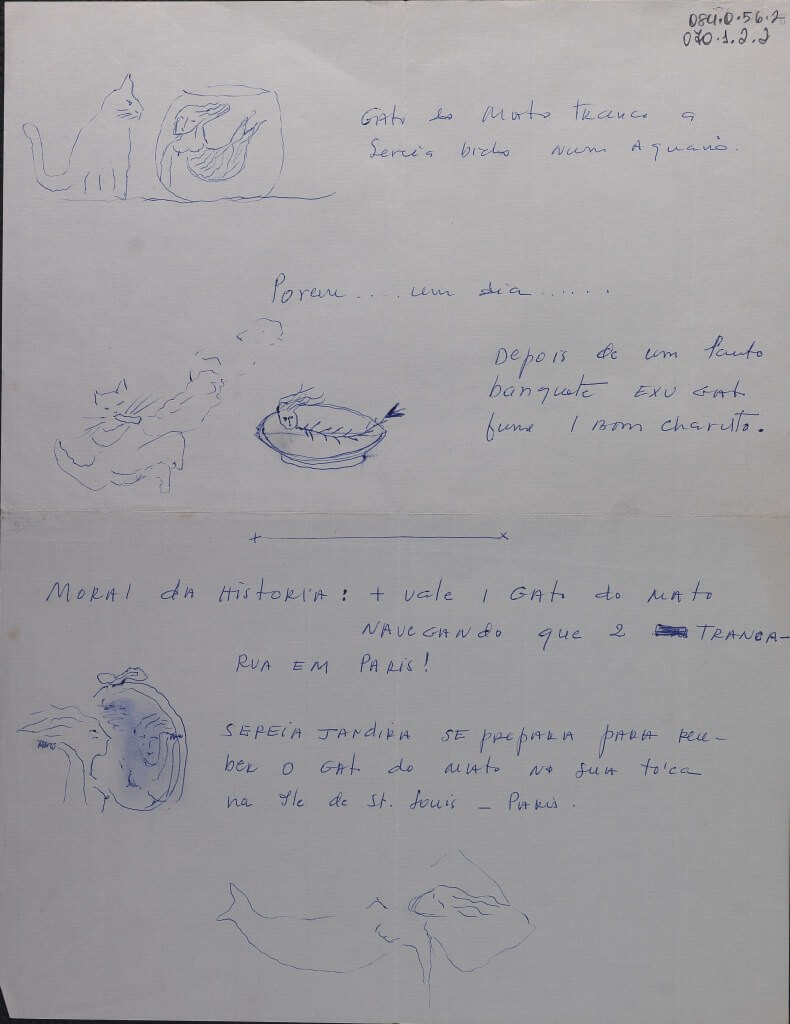 084.0.56.2
070.1.2.2
GATO do MATO TRANCA A
Sereia bicho NUM AQUARIO.
Porem .... um dia ......
DEPOIS de um lauto
banquete EXU GATO
fuma 1 BOM charuto.
MORAL dA HISTORIA: + vale 1 GATO do MATO
NAVEGANdo que 2 TRANCA-
RUA EM PARIS!
SEREIA JANDIRA SE PREPARA PARA Rece-
ber O GATO do MATO NA SUA toca
na Ile de St. Louis - PARIS.